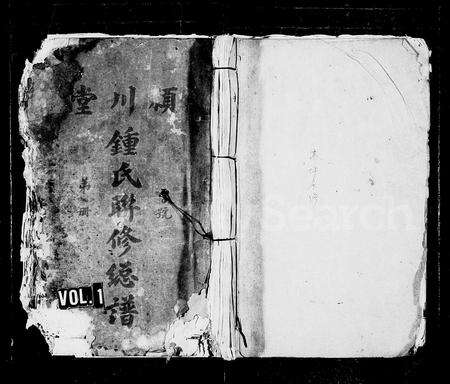 潁川堂
鍾氏聯修總譜
第一冊
號
VOL. 1
Search